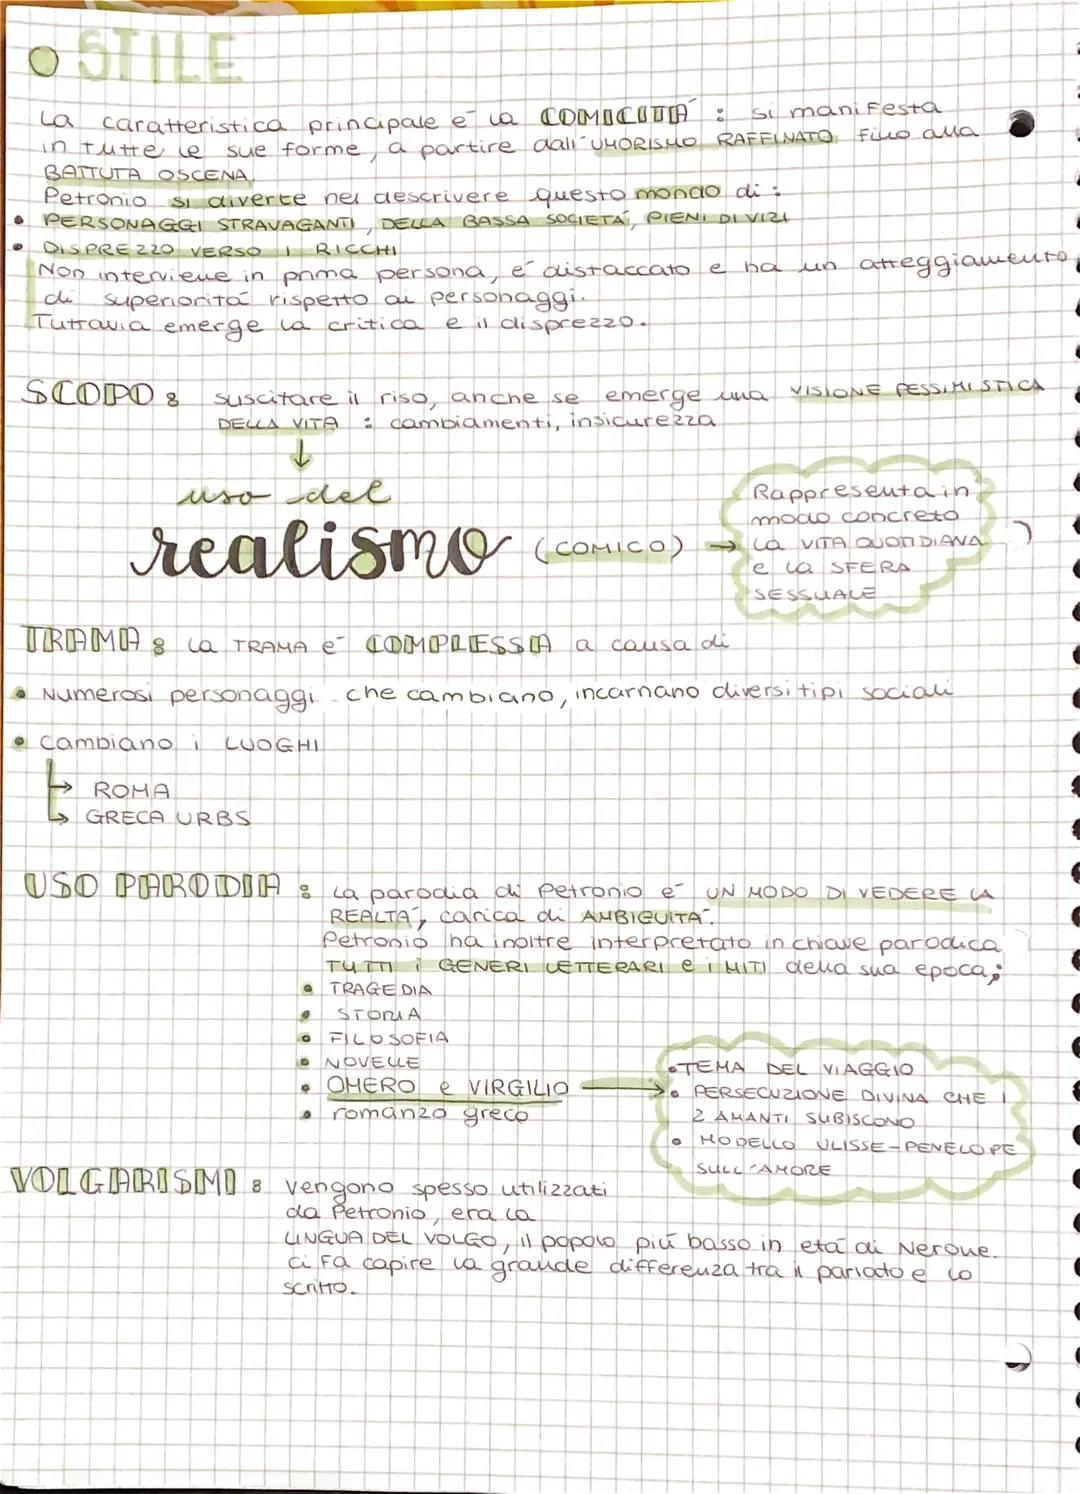 STILE
La caratteristica principale è la COMICITÀ : si manifesta
in tutte le sue forme, a partire dall'UMORISMO RAFFINATO fino alla
BATTUTA OSCENA.
Petronio si diverte nel descrivere questo mondo di :
• PERSONAGGI STRAVAGANTI, DELLA BASSA SOCIETÀ, PIENI DI VIZI
• DISPREZZO VERSO I RICCHI
Non interviene in prima persona, è distaccato e ha un atteggiamento
di superiorità rispetto ai personaggi.
Tuttavia emerge la critica e il disprezzo.
SCOPO : suscitare il riso, anche se emerge una VISIONE PESSIMISTICA
DELLA VITA : cambiamenti, insicurezza
↓
uso del
realismo (COMICO) →
Rappresenta in
modo concreto
la VITA QUOTIDIANA
e la SFERA
SESSUALE
TRAMA : la TRAMA è COMPLESSA a causa di
• Numerosi personaggi che cambiano, incarnano diversi tipi sociali
• cambiano i LUOGHI
↳ ROMA
↳ GRECA URBS
USO PARODIA : La parodia di Petronio è UN MODO DI VEDERE LA
REALTÀ, carica di AMBIGUITÀ.
Petronio ha inoltre interpretato in chiave parodica
TUTTI i GENERI LETTERARI e i MITI della sua epoca;
• TRAGEDIA
• STORIA
• FILOSOFIA
• NOVELLE
• OMERO e VIRGILIO →
• romanzo greco
• TEMA DEL VIAGGIO
• PERSECUZIONE DIVINA CHE I
2 AMANTI SUBISCONO
• MODELLO ULISSE-PENELOPE
SULL'AMORE
VOLGARISMI : vengono spesso utilizzati
da Petronio, era la
LINGUA DEL VOLGO, il popolo più basso in età di Nerone.
ci fa capire la grande differenza tra il parlato e lo
scritto.